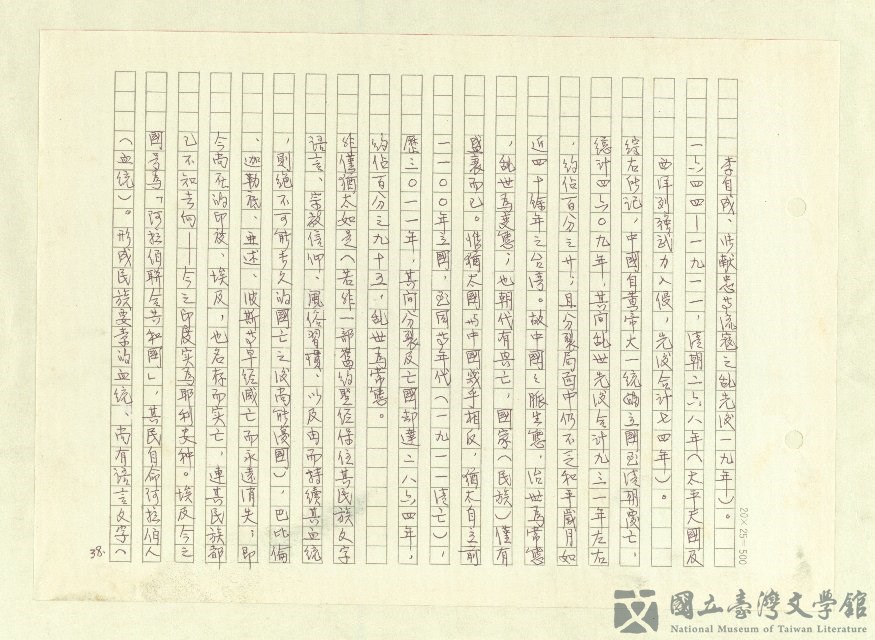 李自成、張献忠等流寇之乱先後一九年)。
一六四四—一九一一,清朝二六八年(太平天國及
西洋列強武力入侵,先後合計七四年)。
綜右所记,中國自黃帝大一統的立國至清朝覆亡,
總計四六〇九年,其间乱世先後合計九三一年左右
,約佔百分之廿;且分裂局面中仍不乏和平歲月如
近四十餘年之台湾。故中國之脈生態,治世為常態
,乱世為变態;也朝代有興亡,國家(民族)僅有
盛衰而已。惟猶太國与中國幾乎相反,猶太自主前
一一〇〇年立國,至同等年代(一九一一清亡),
歷三〇一一年,其间分裂及亡國却達二八六四年,
約佔百分之九十五,乱世為常態。
非僅猶太如是(若非一部舊約聖经保住其民族文字
語言、宗教信仰、風俗習慣,以及由而持續其血統
,則绝不可能于久的國亡之後尚能復國),巴比倫
、迦勒底、亚述、波斯等早经滅亡而永遠消失;即
今尚在的印度、埃及,也名存而实亡,連其民族都
已不知去向——今之印度实為耶利安种。埃及今之
國号為「阿拉伯聯合共和國」,其民自命阿拉伯人
(血统)。形成民族要素的血统、尚有語言文字(
38.
20×25=500
國立臺灣文學館
National Museum of Taiwan Literature